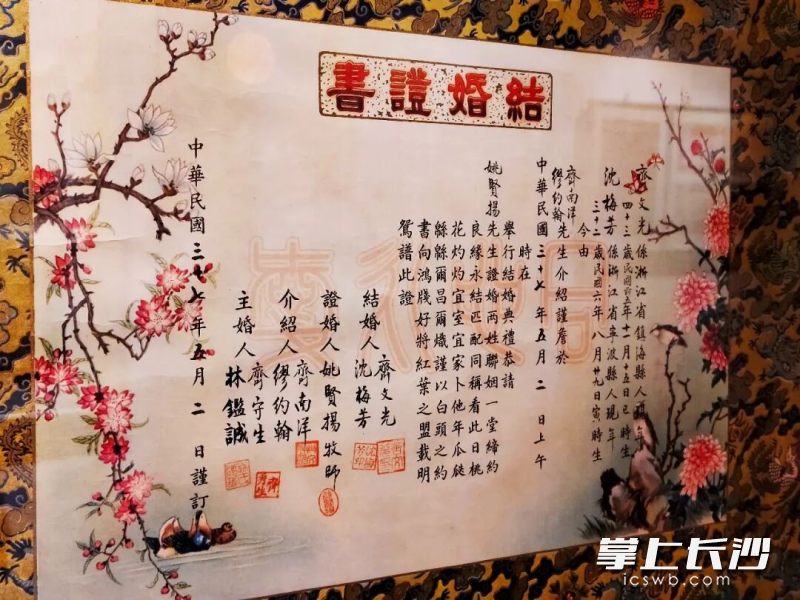 結婚證書
齊文光係浙江省鎮海縣人現年
四十三歲民國前五年十一月十五日巳時生
沈梅芳係浙江省寧波縣人現年
三十二歲民國六年八月廿九日寅時生
今由
齊南洋
繆約翰先生介紹謹詹於
中華民國三十七年五月二日上午
時在
舉行結婚典禮恭請
姚賢揚先生證婚兩姓聯姻一堂締約
良緣永結匹配同稱看此日桃
花灼灼宜室宜家卜他年瓜瓞
緜緜爾昌爾熾謹以白頭之約
書向鴻牋好將紅葉之盟載明
鴛譜此證
結婚人
齊文光
沈梅芳
證婚人姚賢揚牧師
介紹人
齊南洋
繆約翰
主婚人
齊守生
林鑑誠
中華民國三十七年五月二日謹訂
掌上长沙
icswb.com